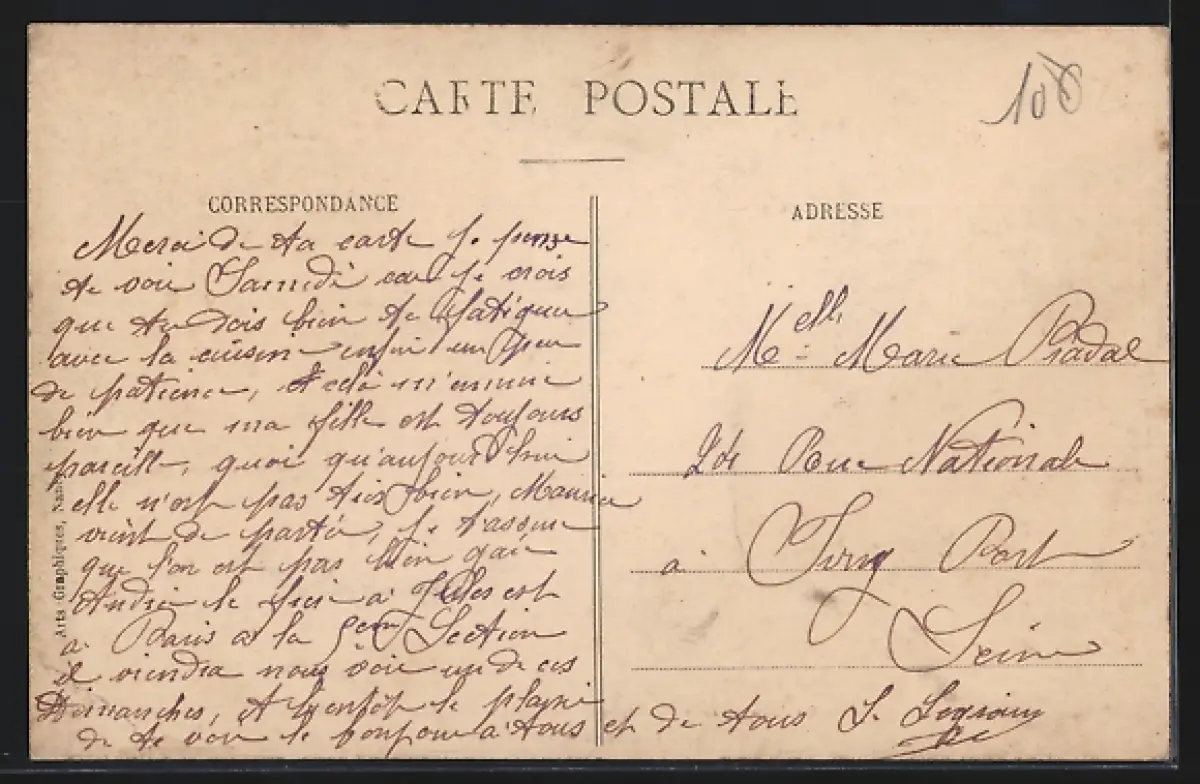 CARTE POSTALE
108
CORRESPONDANCE
ADRESSE
Merci de ta carte je pense
te voir Samedi car je crois
que tu dois bien te fatiguer
avec la cuisine enfin un peu
de patience, et cela m'ennuie
bien que ma fille est toujours
pareille, quoi qu'aujourd'hui
elle n'est pas très bien, Maurice
vient de partir, je t'assure
que l'on est pas bien gai
André le frère à Jules est
à Paris à la 5em Section
il viendra nous voir un de ces
Dimanches, A bientôt le plaisir
de te voir le bonjour à tous et de tous J.
Melle Marie Pradal
Rue Nationale
à Ivry Port
Seine
Arts Graphiques,